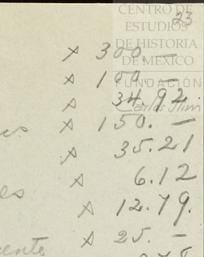 CENTRO DE
ESTUDIOS
DE HISTORIA
DE MEXICO
FUNDACIÓN
Carlos Slim
23
x 300. —
x 100. —
x 34.92
x 150. —
x 35.21
x 6.12
x 12.79.
x 25. —